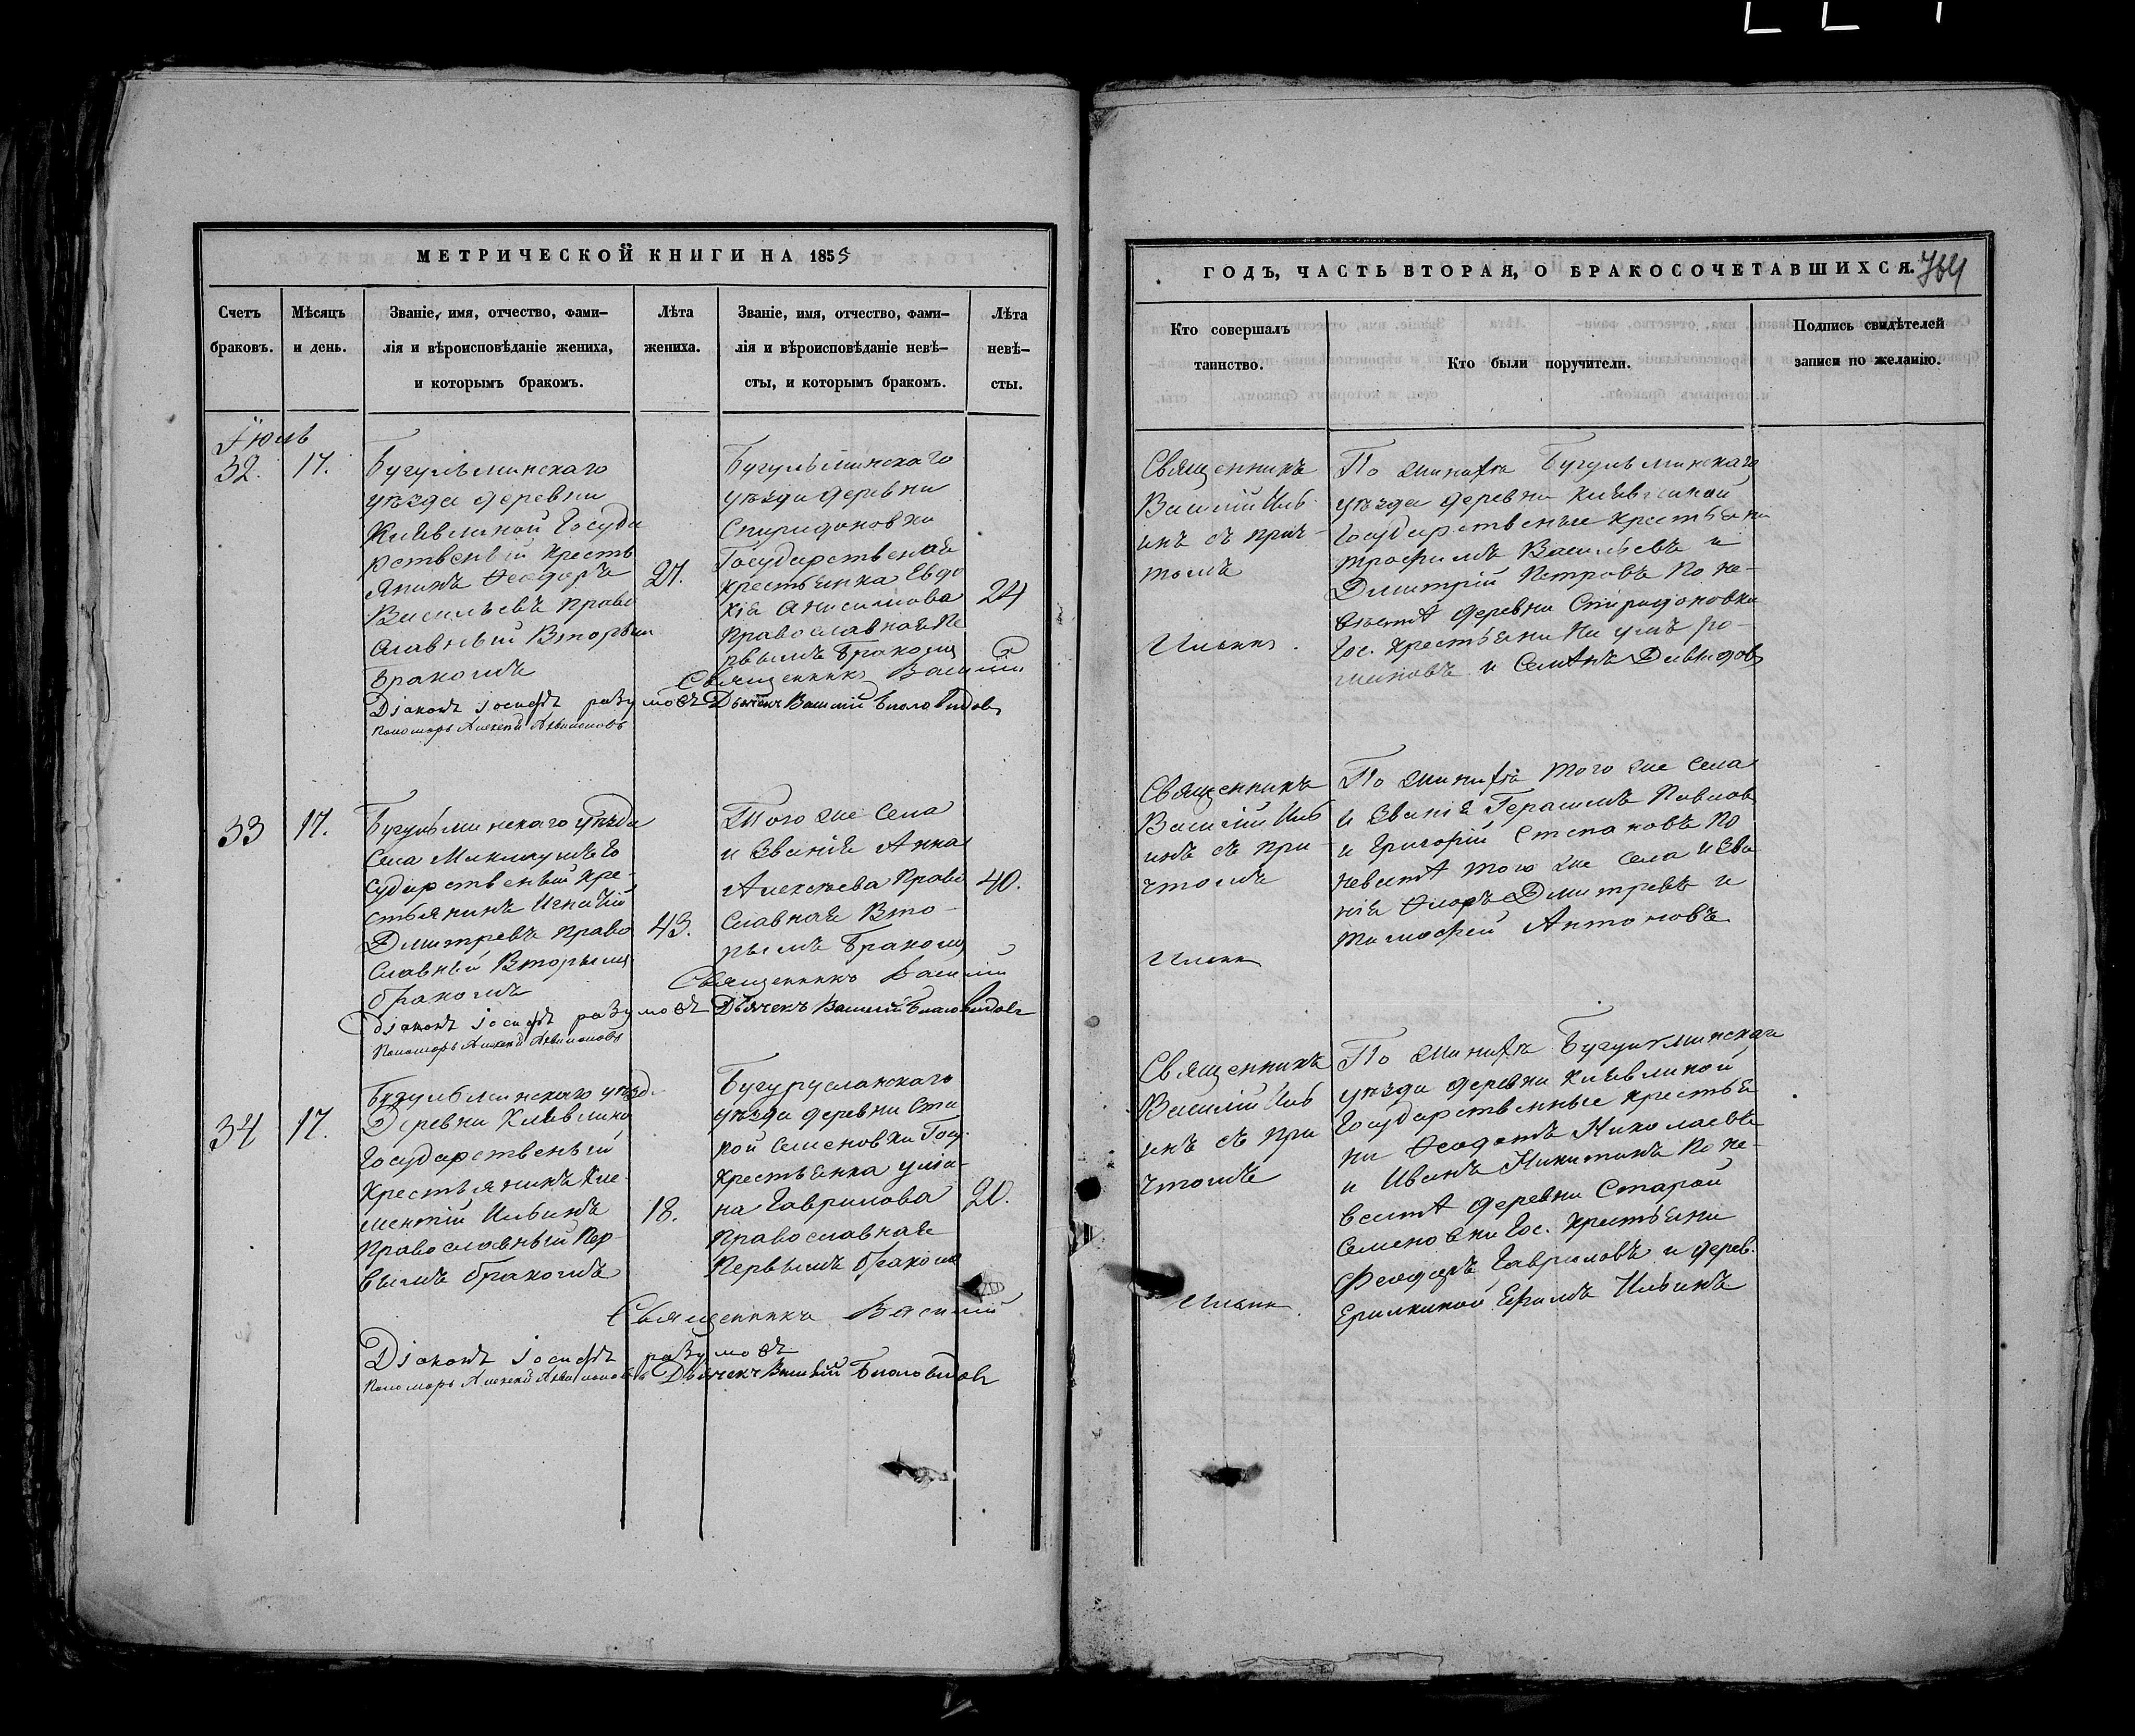 МЕТРИЧЕСКОЙ КНИГИ НА 1855
Счетъ браковъ.
Мѣсяцъ и день.
Званіе, имя, отчество, фами-
лія и вѣроисповѣданіе жениха,
и которымъ бракомъ.
Лѣта жениха.
Званіе, имя, отчество, фами-
лія и вѣроисповѣданіе невѣ-
сты, и которымъ бракомъ.
Лѣта невѣ-
сты.
32. 17.
Бугульминскаго
уѣзда деревни
Государ
рственый кресть
янинъ Ѳеодоръ
Васильевъ право
славный Вторым
бракомъ
27.
Бугульминскаго
уѣзда деревни
Спиридоновки
Государственая
крестьянка Евдо
кія Анисимова
православная пе
рвымъ бракомъ
24
Священникъ Василій
Діаконъ Іосифъ разумовъ Дьячекъ Василій Благовидовъ
Пономарь Алексей
33 17.
Бугульминскаго уѣзда
Села Микулушъ Го
сударственый кре-
стьянинъ Игнатій
Дмитревъ право
славный Вторымъ
бракомъ
43.
Того же села
и званія Анна
Алексеева право
славная Вто-
рымъ бракомъ
40.
Священникъ Василій
Діаконъ Іосифъ разумовъ Дьячекъ Василій Благовидовъ
Пономарь Алексей
34 17.
Бугульминскаго уезд.
Деревни
Государственый
крестьянинъ Кле-
ментій Ильинъ
православный пер-
вымъ бракомъ
18.
Бугурусланскаго
уѣзда деревни Ста
рой Семеновки Госу.
крестьянка улiа-
на Гаврилова
православная
первымъ бракомъ
20.
Священникъ Василій
Діаконъ Іосифъ разумовъ
Пономарь Алексей Дьячекъ Василій Благовидовъ
ГОДЪ, ЧАСТЬ ВТОРАЯ, О БРАКОСОЧЕТАВШИХСЯ.
Кто совершалъ
таинство.
Кто были поручители.
Подпись свидѣтелей
записи по желанію.
Священникъ
Василій Иль
инъ съ прич-
томъ
Ильинъ.
По жениха Бугульминскаго
уѣзда деревни
Государственые крестьяни
Трофимъ Васильевъ и
Димитрій Петровъ по не-
деревни Спиридоновки
Гос. крестьяни Наумъ Ро-
мановъ и Семенъ Давыдовъ
Священникъ
Василій Иль
инъ съ при
чтомъ
Ильинъ
По того же села
и званія Герасимъ Павлов
и Григорій Степановъ по
того же села и зва
нія Флоръ Дмитревъ и
Тимофей Антоновъ
Священникъ
Василій Иль
инъ съ при
чтомъ
Ильинъ.
По Бугульминскаго
уѣзда деревни
Государственные крестья
ни Ѳеодотъ Николаевъ
и Иванъ Никитинъ по не-
деревни Старой
Семеновки Гос. крестьяни
Феодоръ Гавриловъ и дерев.
Ерилкиной Ефимъ Ильинъ